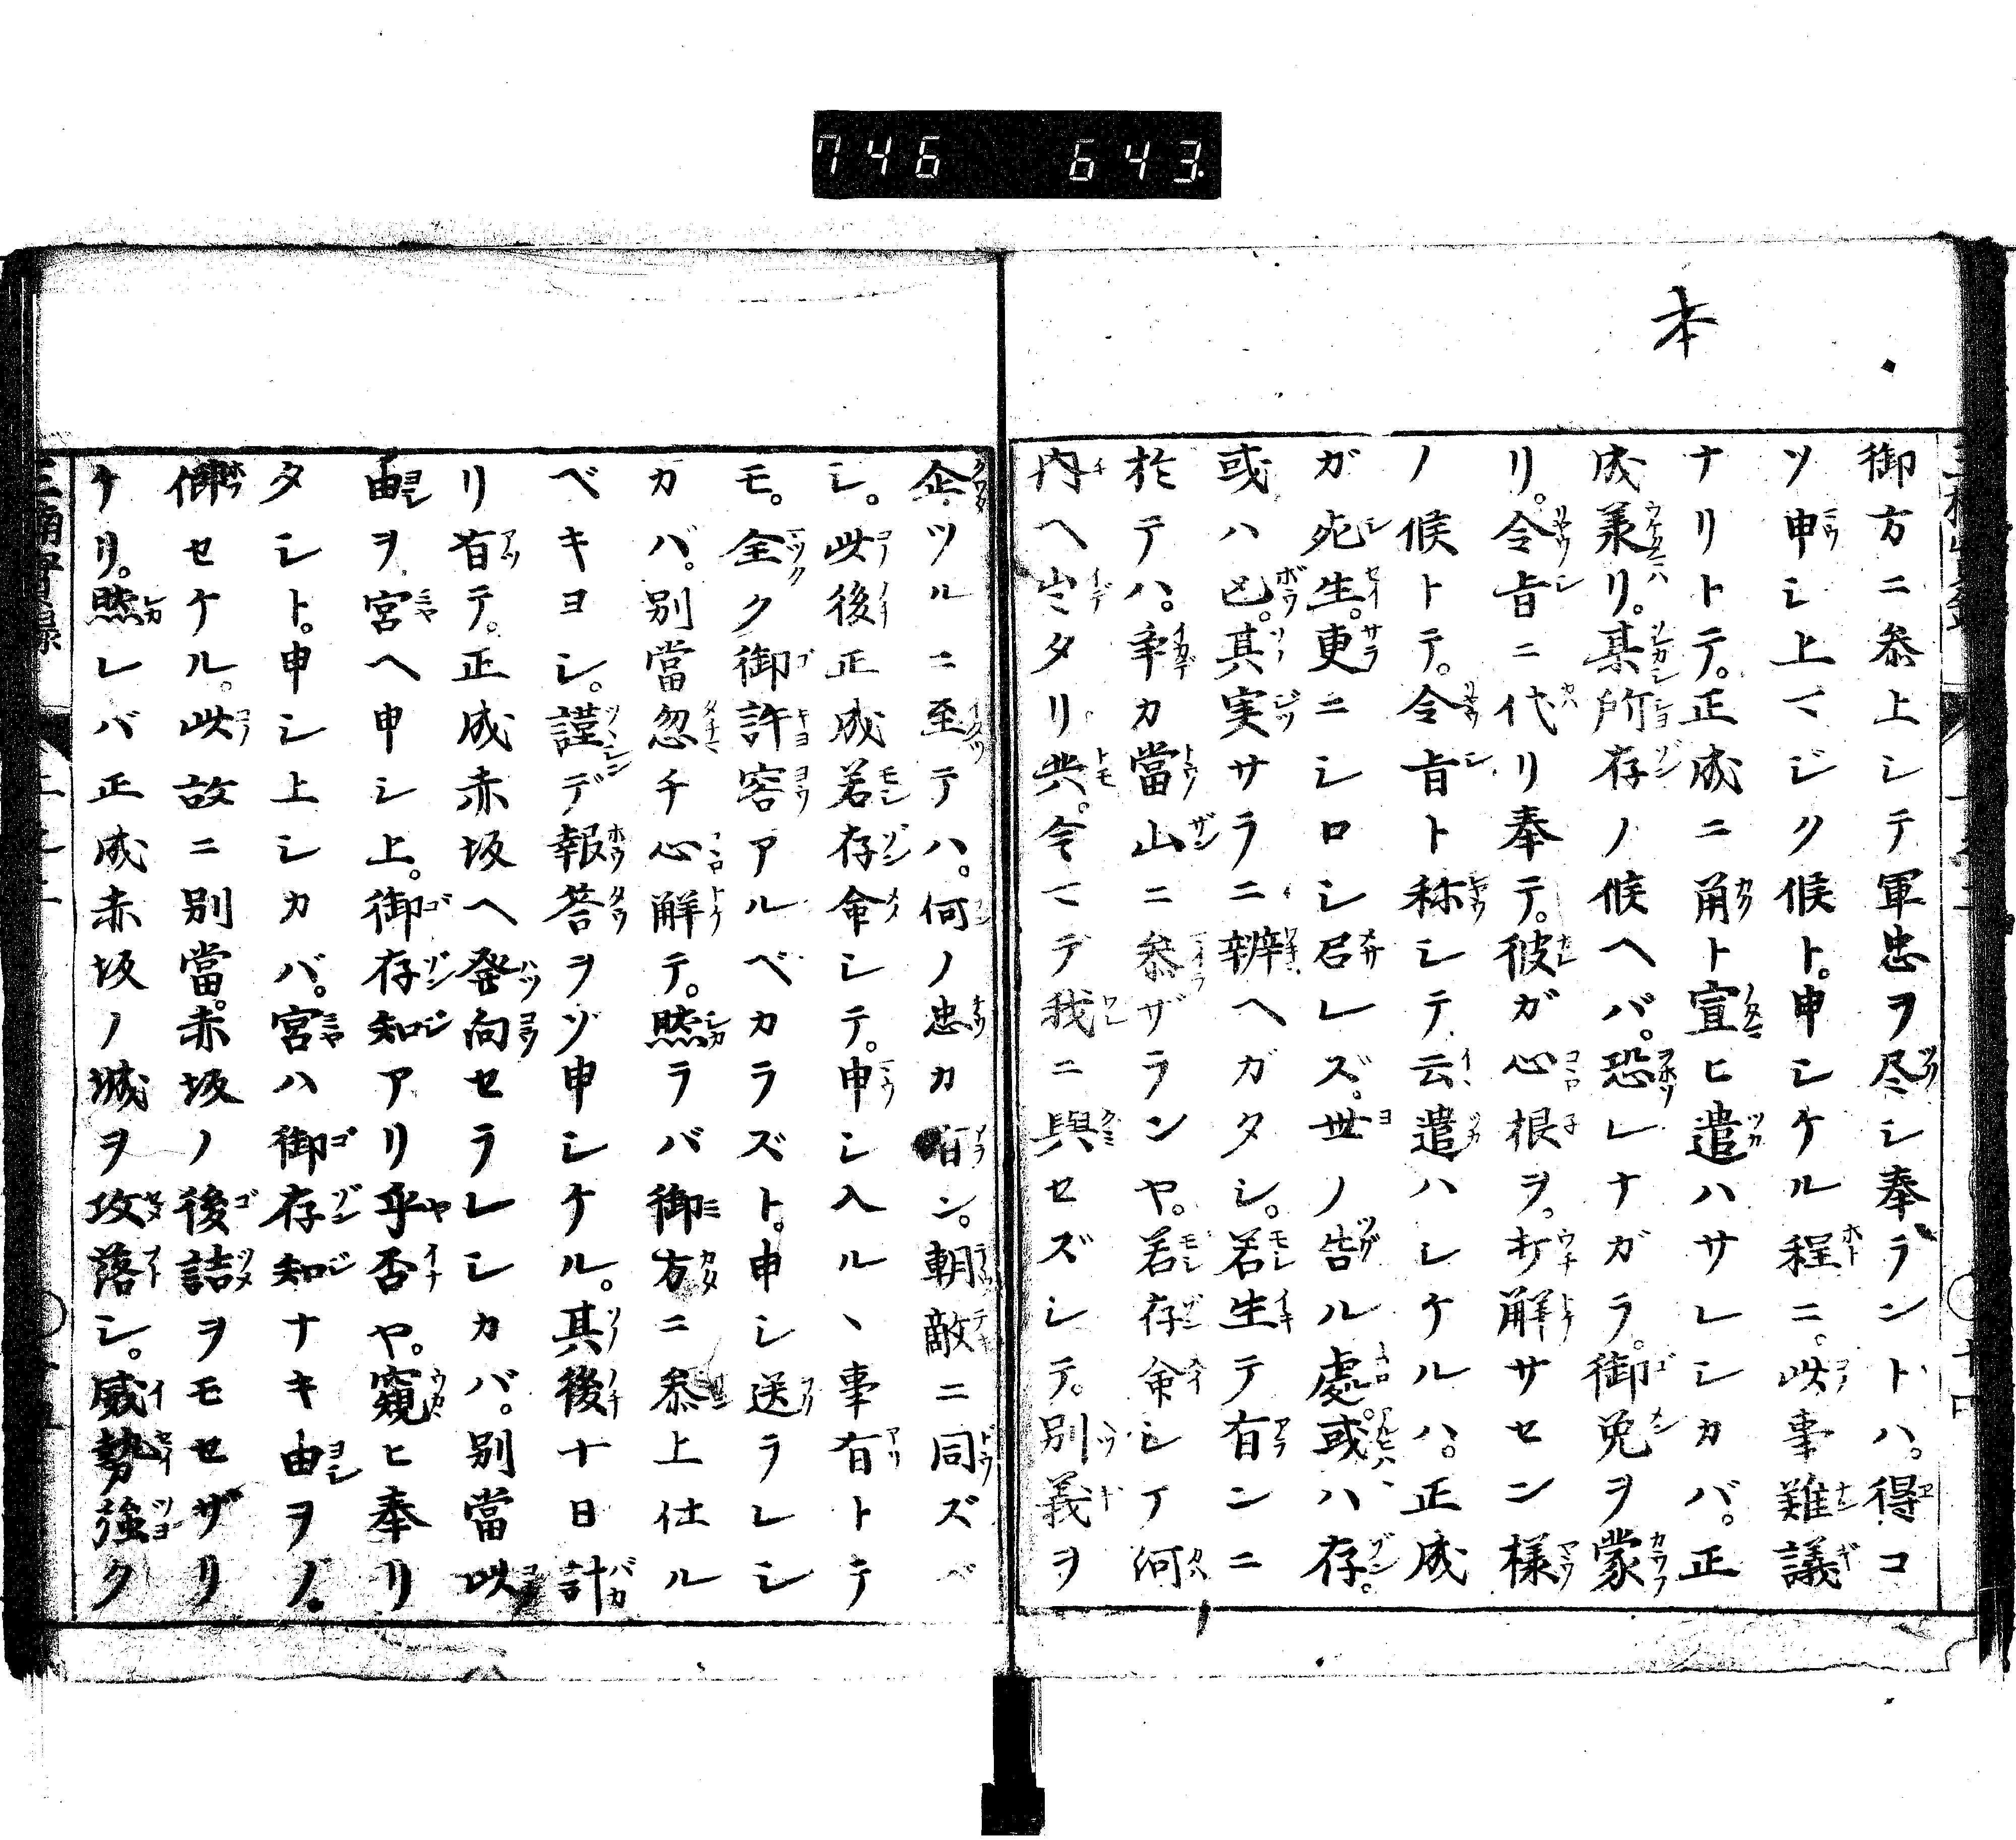 746 643
本
御方ニ参上シテ軍忠ヲ尽シ奉ラントハ。得コ
ソ申シ上マジク候ト。申シケル程ニ。此事難議
ナリトテ。正成ニ角ト宣ヒ遣ハサレシカバ。正
成羕リ。某所存ノ候ヘバ。恐レナガラ。御免ヲ蒙
リ。令旨ニ代リ奉テ。彼ガ心根ヲ。打解サセン様
ノ候トテ。令旨ト称シテ云遣ハシケルハ。正成
ガ死生。更ニシロシ召レズ。世ノ告ル處。或ハ存。
或ハ亡。其実サラニ辨ヘガタシ。若生テ有ンニ
於テハ。争カ當山ニ参ザランヤ。若存命シテ何
内ヘ出タリ共。今マデ我ニ與セズシテ。別義ヲ
企ツルニ至テハ。何ノ忠カ有ン。朝敵ニ同ズベ
シ。此後正成若存命シテ。申シ入ルヽ事有トテ
モ。全ク御許容アルベカラズト。申シ送ラレシ
カバ。別當忽チ心解テ。然ラバ御方ニ参上仕ル
ベキヨシ。謹デ報答ヲゾ申シケル。其後十日計
リ有テ。正成赤坂ヘ発向セラレシカバ。別當此
由ヲ宮ヘ申シ上。御存知アリ乎否ヤ。窺ヒ奉リ
タシト。申シ上シカバ。宮ハ御存知ナキ由ヲノ
俸セケル。此故ニ別當。赤坂ノ後詰ヲモセザリ
ケリ。然レバ正成赤坂ノ城ヲ攻落シ。威勢強ク